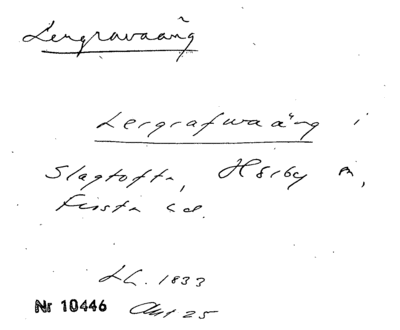 Lergravaäng
Lergrafwaäng i
Slagtofta, Hörby sn,
Frosta hd.
LL. 1833
Nr 10446 Akt 25